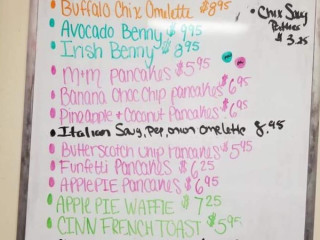 Buffalo Chix Omelette $8.95
Avocado Benny $9.95
Irish Benny $8.95
M&M Pancakes $5.95
Banana Choc Chip pancakes $6.95
Pineapple & Coconut Pancakes $6.95
Italian Saus, Pep, onion omelette 8.95
Butterscotch Chip Pancakes $5.45
Funfetti Pancakes $6.25
APPLE PIE Pancakes $6.95
APPLE PIE WAFFLE $7.25
CINN FRENCH TOAST $5.95
Chix Saus
Patties
$3.25